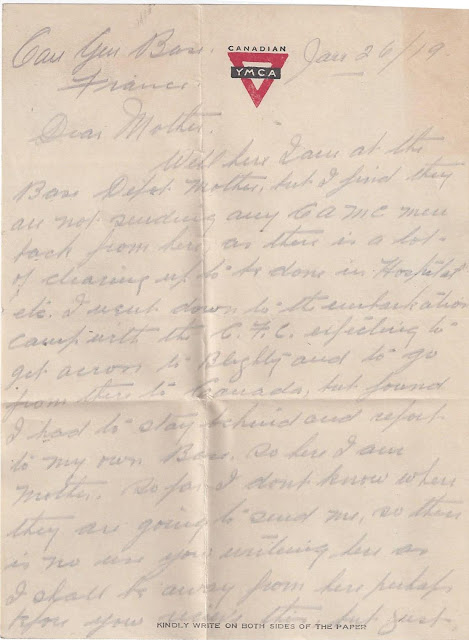 Can Gen Base.
CANADIAN
YMCA
Jan 26/19
France
Dear Mother.
Well here I am at the
Base Depot Mother, but I find they
are not sending any C A M C men
back from here, as there is a lot
of clearing up to be done in Hospital
etc. I went down to the embarkation
camp with the C. F. C. expecting to
get across to Blighty and to go
from there to Canada, but found
I had to stay behind and report
to my own Base. so here I am
Mother. So far I dont know where
they are going to send me, so there
is no use you writeing here as
I shall be away from here perhaps
before you this but just
KINDLY WRITE ON BOTH SIDES OF THE PAPER